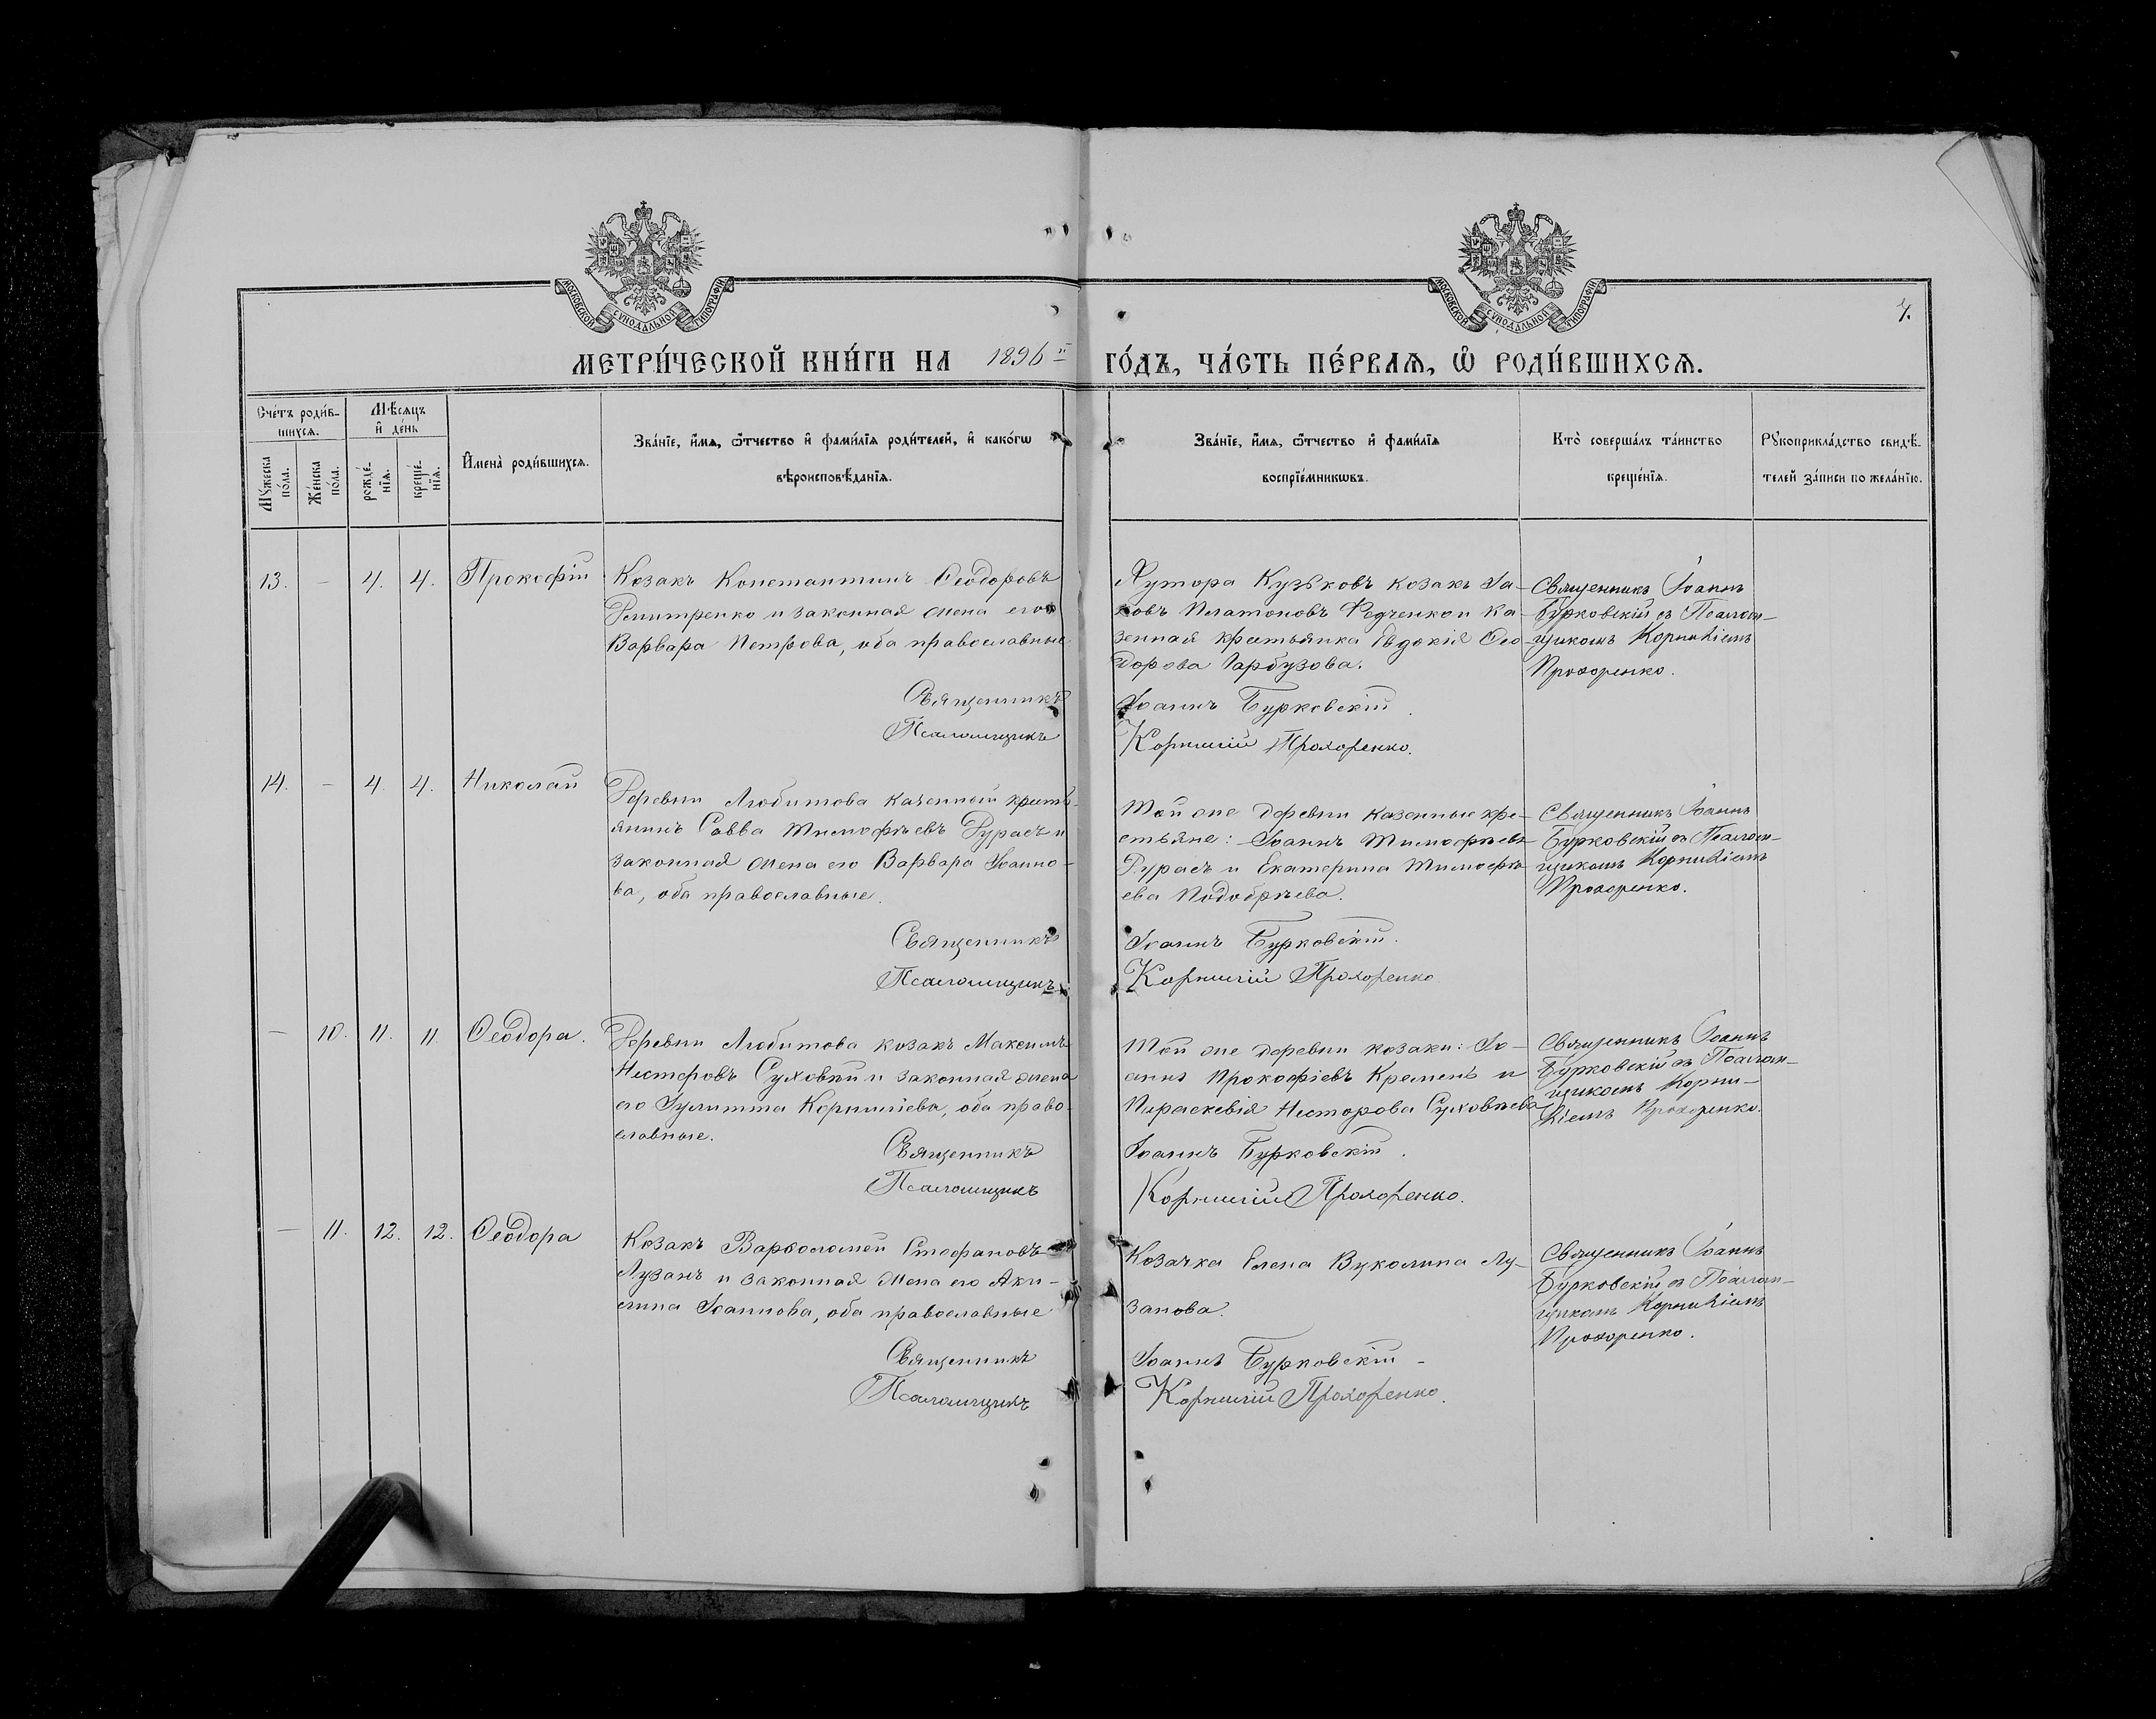 МОСКОВСКОЙ СѴНОДАЛЬНОЙ ТИПОГРАФІИ
МОСКОВСКОЙ СѴНОДАЛЬНОЙ ТИПОГРАФІИ
МЕТРИ́ЧЕСКОЙ КНИ́ГИ НА 1896й ГО́ДЪ, ЧА́СТЬ ПЕ́РВАѦ, Ѡ РОДИ́ВШИХСѦ.
Сче́тъ роди́в-
шихсѧ.
Мѣ́сѧцъ
и҆ де́нь
Мꙋ́жеска
по́ла.
Же́нска
по́ла.
рожде́-
нїѧ.
креще́-
нїѧ.
И҆мена̀ роди́вшихсѧ.
Зва́нїе, и҆́мѧ, ѻ҆́тчество и҆ фами́лїѧ роди́телей, и҆ како́гѡ
вѣроисповѣ́данїѧ.
Зва́нїе, и҆́мѧ, ѻ҆́тчество и҆ фами́лїѧ
воспрїе́мникѡвъ.
Кто̀ соверша́лъ та́инство
креще́нїѧ.
Рꙋкоприкла́дство свидѣ́-
телей за́писи по жела́нїю.
13. – 4. 4. Прокофій
Козакъ Константинъ Ѳеодоровъ
Дмитренко и законная жена его
Варвара Петрова, оба православные
Священникъ
Псаломщикъ
Хутора Кузьковъ козакъ Іа-
ковъ Платоновъ Федченко и ка-
зенная крестьянка Евдокія Ѳео-
дорова Гарбузова.
Іоаннъ Бурковскій
Корнилій Прохоренко.
Священникъ Іоаннъ
Бурковскій съ Псалом-
щикомъ Корниліемъ
Прохоренко.
14. – 4. 4. Николай
Деревни Любитова казенный кресть-
янинъ Савва Тимофѣевъ Дурасъ и
законная жена его Варвара Іоанно-
ва, оба православные.
Священникъ
Псаломщикъ
Той же деревни казенные кре-
стьяне: Іоаннъ Тимофѣевъ
Дурасъ и Екатерина Тимофѣ-
ева Подобрѣева.
Іоаннъ Бурковскій.
Корнилій Прохоренко
Священникъ Іоаннъ
Бурковскій съ Псалом-
щикомъ Корниліемъ
Прохоренко.
– 10. 11. 11. Ѳеодора.
Деревни Любитова козакъ Максимъ
Несторовъ Суховѣй и законная жена
его Іулитта Корниліева, оба право-
славные.
Священникъ
Псаломщикъ
Той же деревни козаки: Іо-
аннъ Прокофіевъ Кремень и
Параскевія Несторова Суховѣева
Іоаннъ Бурковскій.
Корнилій Прохоренко.
Священникъ Іоаннъ
Бурковскій съ Псалом-
щикомъ Корни-
ліемъ Прохоренко.
– 11. 12. 12. Ѳеодора
Козакъ Варѳоломей Стефановъ
Лузанъ и законная жена его Аки-
лина Іоаннова, оба православные
Священникъ
Псаломщикъ
Козачка Елена Вуколина Лу-
занова.
Іоаннъ Бурковскій
Корнилій Прохоренко.
Священникъ Іоаннъ
Бурковскій съ Псалом-
щикомъ Корниліемъ
Прохоренко.